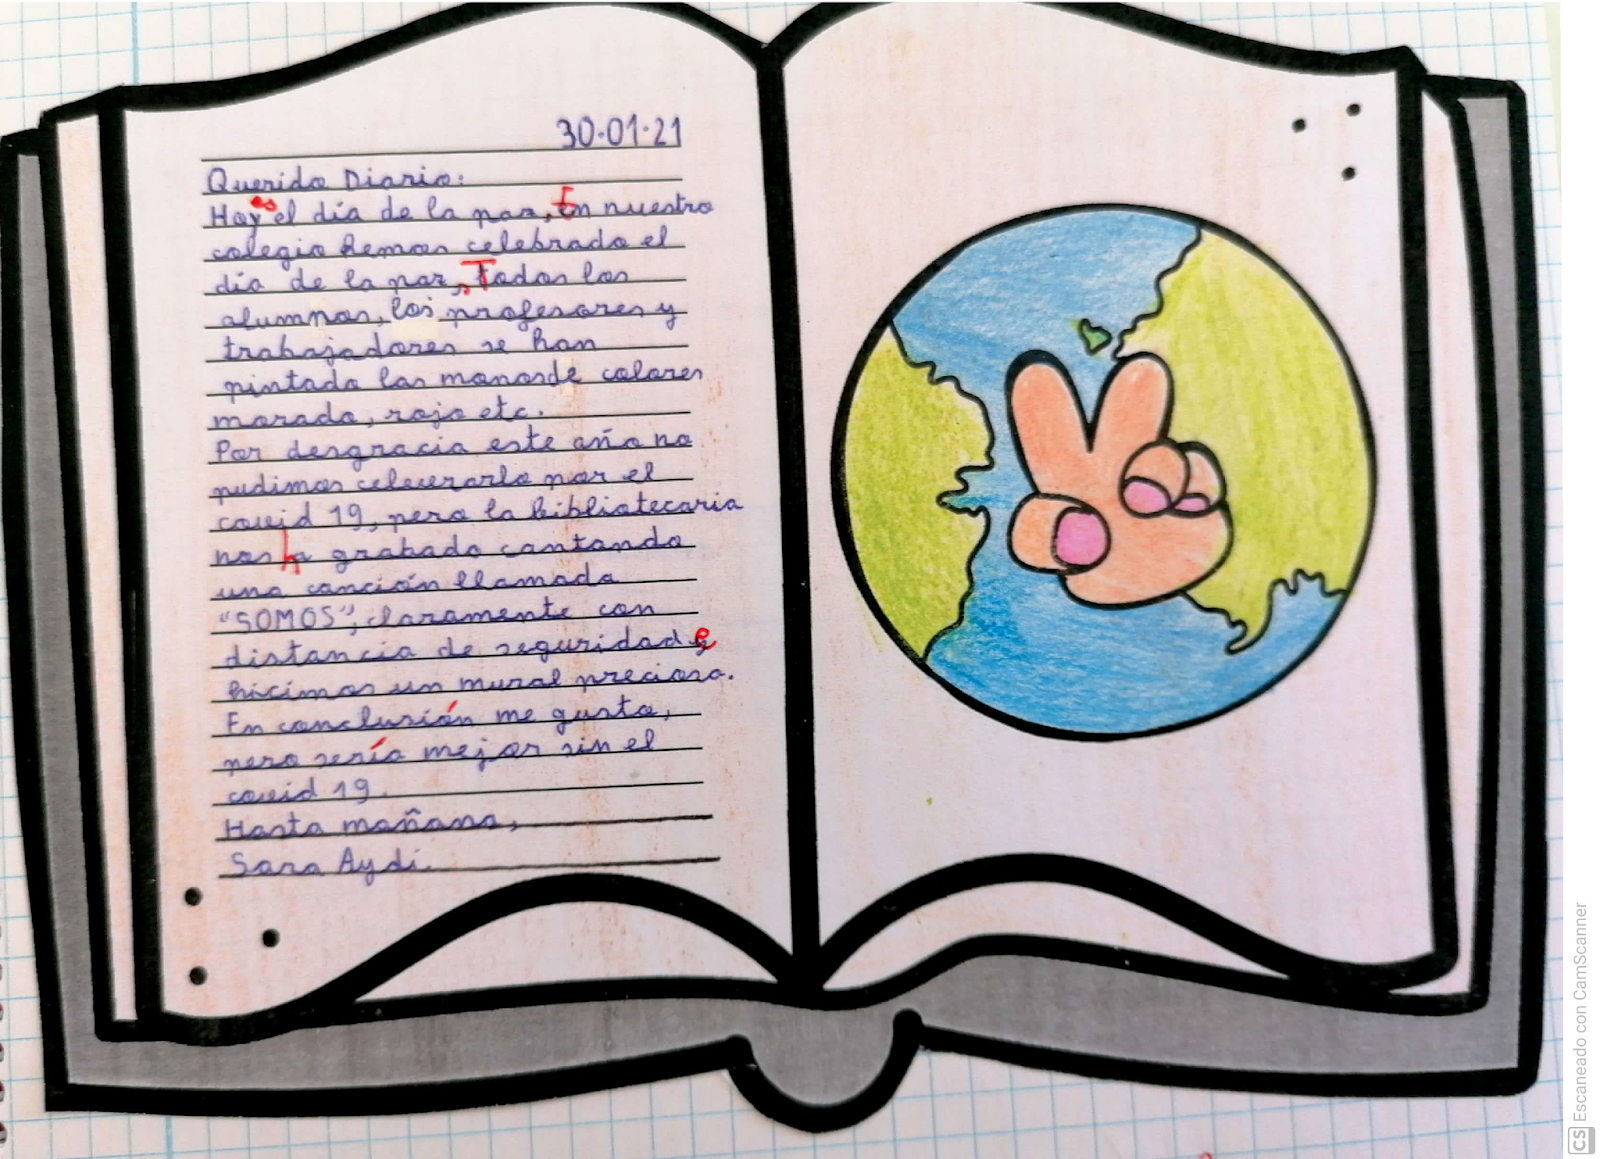 30·01·21
Querido Diario:
Hoy es el día de la paz, En nuestro
colegio hemos celebrado el
día de la paz, Todos los
alumnos, los profesores y
trabajadores se han
pintado las manos de colores
morado, rojo etc.
Por desgracia este año no
pudimos celeverarlo por el
covid 19, pero la bibliotecaria
nos ha grabado cantando
una canción llamada
"SOMOS", claramente con
distancia de seguridad e
hicimos un mural precioso.
En conclusión me gusta,
pero sería mejor sin el
covid 19.
Hasta mañana,
Sara Aydi.
CS Escaneado con CamScanner